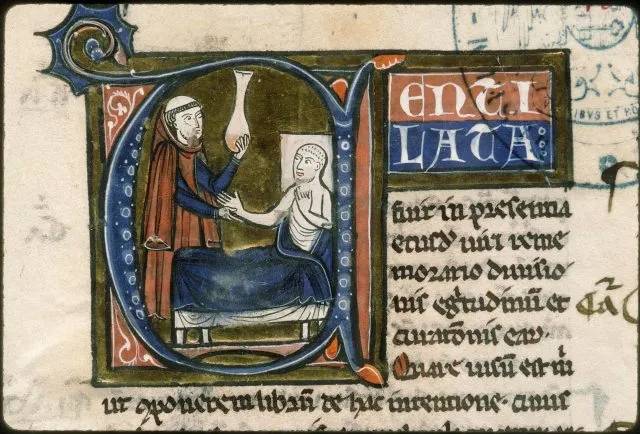 VENTI
LATA
fuit in presentia
eiusd̄ uiri reme
moratio diuisio
nis eg̾tudinū et
curatōnis ear̄
Quare uisū est m̄
ut exponerem librū de hac intentione. cuius